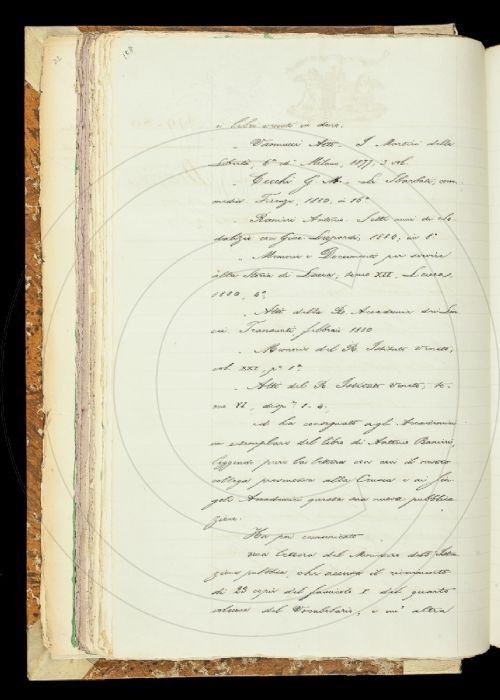 i libri venuti in dono.
„ Vannucci Atto. I Martiri della
Libertà, 6ª ed. Milano, 1877, 2 vol.
„ Cecchi G. M. Lo Sbarlato, com
media Firenze, 1880, in 16°
„ Ranieri Antonio. Sette anni di So
dalizio con Giac. Leopardi, 1880, in 8°
„ Memorie e Documenti per servire
alla Storia di Lucca, tomo XII, Lucca,
1880, 4°
„ Atti della R. Accademia dei Lin
cei. Transunti, febbraio 1880
„ Memorie del R. Istituto Veneto,
vol. XXI, pᵉ 1ª
„ Atti del R. Istituto Veneto, to-
mo VI, disp. 1-4,
ed ha consegnato agli Accademici
un esemplare del libro di Antonio Ranieri,
leggendo pure la lettera con cui il nostro
collega presentava alla Crusca e ai sin
goli Accademici questa sua nuova pubblica
zione.
Ha poi comunicato
una lettera del Ministro dell' Istru
zione pubblica, che accusa il ricevimento
di 23 copie del fascicolo I del quarto
volume del Vocabolario, e un' altra